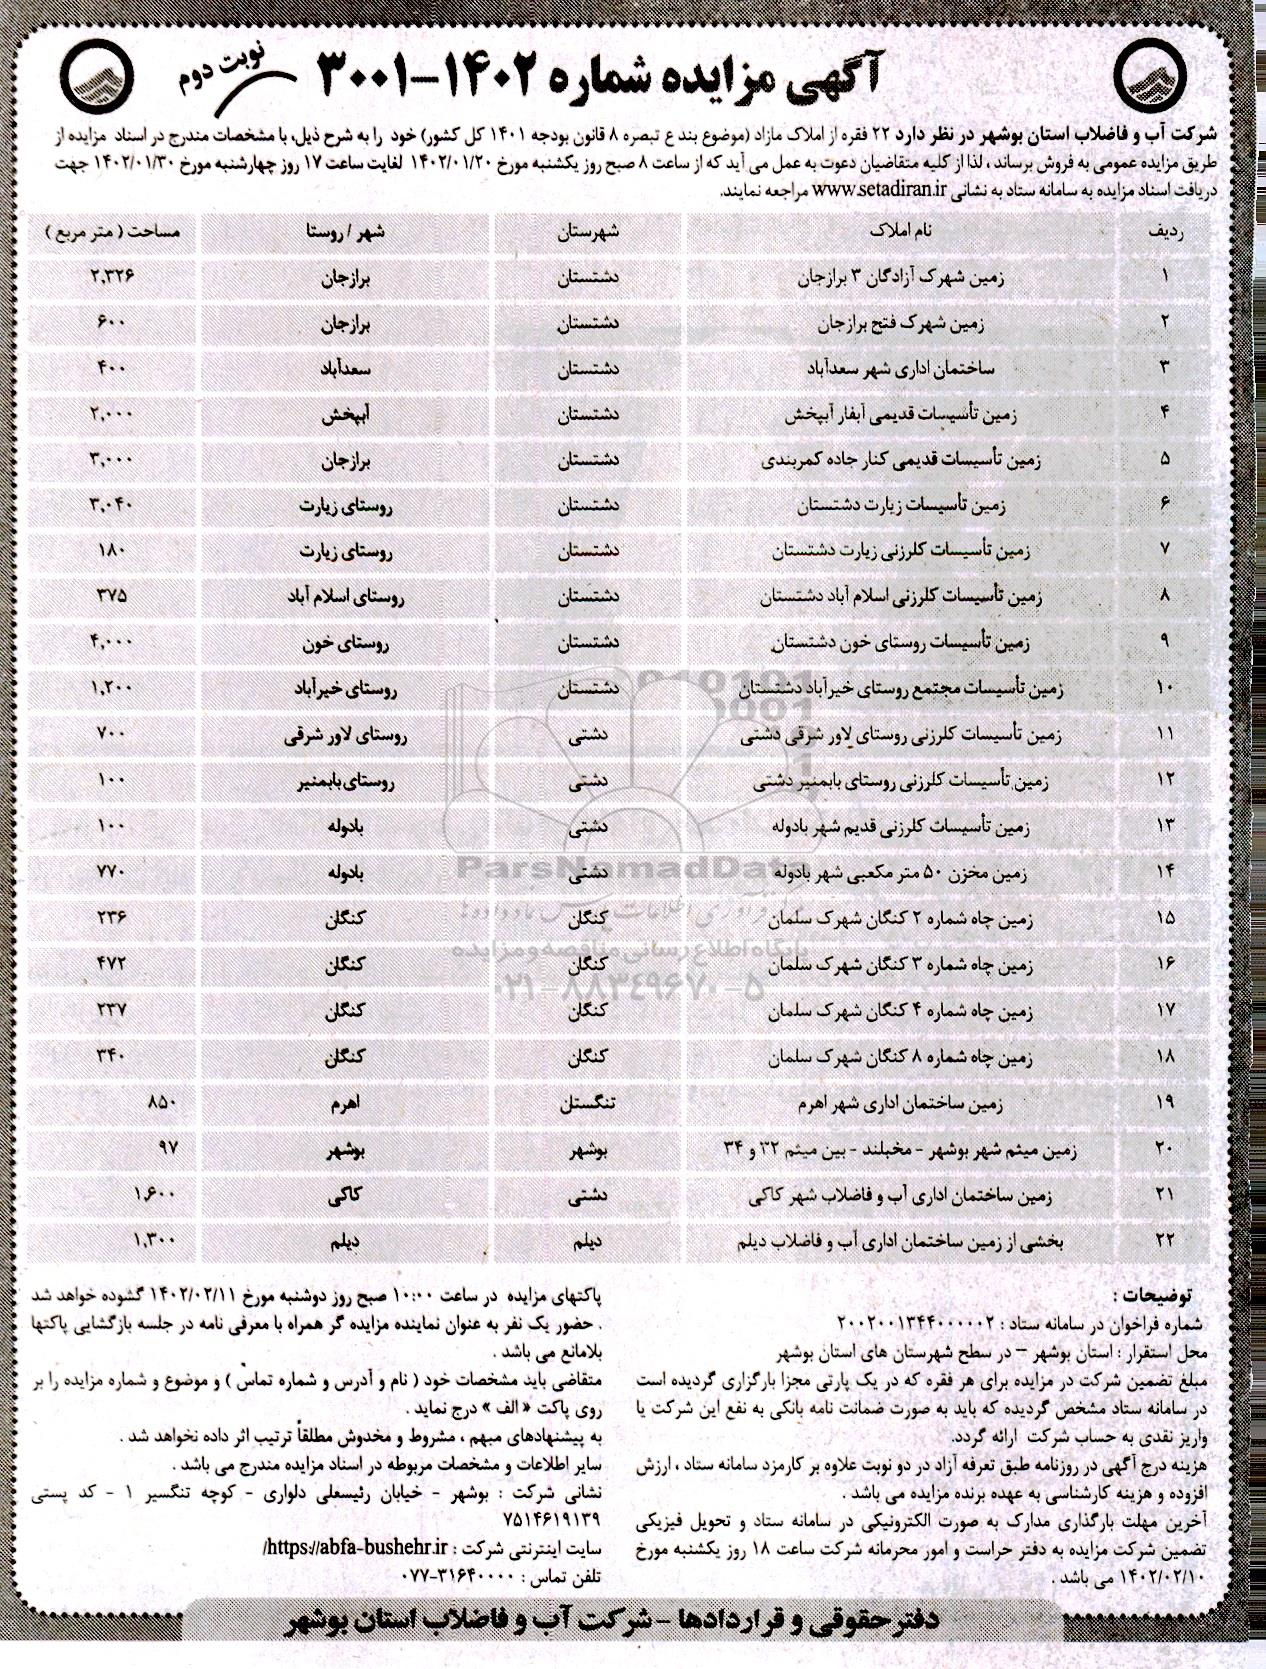 آگهی مزایده شماره ۱۴۰۲-۳۰۰۱
نوبت دوم
شرکت آب و فاضلاب استان بوشهر در نظر دارد ۲۲ فقره از املاک مازاد (موضوع بند ع تبصره ۸ قانون بودجه ۱۴۰۱ کل کشور) خود را به شرح ذیل، با مشخصات مندرج در اسناد مزایده از
طریق مزایده عمومی به فروش برساند ، لذا از کلیه متقاضیان دعوت به عمل می آید که از ساعت ۸ صبح روز یکشنبه مورخ ۱۴۰۲/۰۱/۲۰ لغایت ساعت ۱۷ روز چهارشنبه مورخ ۱۴۰۲/۰۱/۳۰ جهت
دریافت اسناد مزایده به سامانه ستاد به نشانی www.setadiran.ir مراجعه نمایند.
ردیف نام املاک شهرستان شهر / روستا مساحت ( متر مربع )
۱ زمین شهرک آزادگان ۳ برازجان دشتستان برازجان ۲,۳۲۶
۲ زمین شهرک فتح برازجان دشتستان برازجان ۶۰۰
۳ ساختمان اداری شهر سعدآباد دشتستان سعدآباد ۴۰۰
۴ زمین تأسیسات قدیمی آبفار آبپخش دشتستان آبپخش ۲,۰۰۰
۵ زمین تأسیسات قدیمی کنار جاده کمربندی دشتستان برازجان ۳,۰۰۰
۶ زمین تأسیسات زیارت دشتستان دشتستان روستای زیارت ۳,۰۴۰
۷ زمین تأسیسات کلرزنی زیارت دشتستان دشتستان روستای زیارت ۱۸۰
۸ زمین تأسیسات کلرزنی اسلام آباد دشتستان دشتستان روستای اسلام آباد ۳۷۵
۹ زمین تأسیسات روستای خون دشتستان دشتستان روستای خون ۴,۰۰۰
۱۰ زمین تأسیسات مجتمع روستای خیرآباد دشتستان دشتستان روستای خیرآباد ۱,۲۰۰
۱۱ زمین تأسیسات کلرزنی روستای لاور شرقی دشتی دشتی روستای لاور شرقی ۷۰۰
۱۲ زمین تأسیسات کلرزنی روستای بابمنیر دشتی دشتی روستای بابمنیر ۱۰۰
۱۳ زمین تأسیسات کلرزنی قدیم شهر بادوله دشتی بادوله ۱۰۰
۱۴ زمین مخزن ۵۰ متر مکعبی شهر بادوله دشتی بادوله ۷۷۰
۱۵ زمین چاه شماره ۲ کنگان شهرک سلمان کنگان کنگان ۲۳۶
۱۶ زمین چاه شماره ۳ کنگان شهرک سلمان کنگان کنگان ۴۷۲
۱۷ زمین چاه شماره ۴ کنگان شهرک سلمان کنگان کنگان ۲۳۷
۱۸ زمین چاه شماره ۸ کنگان شهرک سلمان کنگان کنگان ۳۴۰
۱۹ زمین ساختمان اداری شهر اهرم تنگستان اهرم ۸۵۰
۲۰ زمین میثم شهر بوشهر - مخبلند - بین میثم ۳۲ و ۳۴ بوشهر بوشهر ۹۷
۲۱ زمین ساختمان اداری آب و فاضلاب شهر کاکی دشتی کاکی ۱,۶۰۰
۲۲ بخشی از زمین ساختمان اداری آب و فاضلاب دیلم دیلم دیلم ۱,۳۰۰
ParsNamadData
پایگاه اطلاع رسانی مناقصه و مزایده
۰۲۱-۸۸۳۴۹۶۷۰-۵
توضیحات :
شماره فراخوان در سامانه ستاد : ۲۰۰۲۰۰۱۳۴۴۰۰۰۰۰۲
محل استقرار : استان بوشهر – در سطح شهرستان های استان بوشهر
مبلغ تضمین شرکت در مزایده برای هر فقره که در یک پارتی مجزا بارگزاری گردیده است
در سامانه ستاد مشخص گردیده که باید به صورت ضمانت نامه بانکی به نفع این شرکت یا
واریز نقدی به حساب شرکت ارائه گردد.
هزینه درج آگهی در روزنامه طبق تعرفه آزاد در دو نوبت علاوه بر کارمزد سامانه ستاد ، ارزش
افزوده و هزینه کارشناسی به عهده برنده مزایده می باشد .
آخرین مهلت بارگذاری مدارک به صورت الکترونیکی در سامانه ستاد و تحویل فیزیکی
تضمین شرکت مزایده به دفتر حراست و امور محرمانه شرکت ساعت ۱۸ روز یکشنبه مورخ
۱۴۰۲/۰۲/۱۰ می باشد .
پاکتهای مزایده در ساعت ۱۰:۰۰ صبح روز دوشنبه مورخ ۱۴۰۲/۰۲/۱۱ گشوده خواهد شد
. حضور یک نفر به عنوان نماینده مزایده گر همراه با معرفی نامه در جلسه بازگشایی پاکتها
بلامانع می باشد .
متقاضی باید مشخصات خود ( نام و آدرس و شماره تماس ) و موضوع و شماره مزایده را بر
روی پاکت « الف » درج نماید .
به پیشنهادهای مبهم ، مشروط و مخدوش مطلقاً ترتیب اثر داده نخواهد شد .
سایر اطلاعات و مشخصات مربوطه در اسناد مزایده مندرج می باشد .
نشانی شرکت : بوشهر - خیابان رئیسعلی دلواری - کوچه تنگسیر ۱ - کد پستی
۷۵۱۴۶۱۹۱۳۹
سایت اینترنتی شرکت : https://abfa-bushehr.ir/
تلفن تماس : ۰۷۷-۳۱۶۴۰۰۰۰
دفتر حقوقی و قراردادها - شرکت آب و فاضلاب استان بوشهر